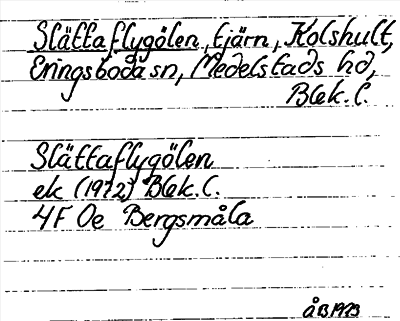 Slättaflygölen, tjärn, Kolshult,
Eringsboda sn, Medelstads hd,
Blek. l.
Slättaflygölen
ek (1972) Blek. l.
4F 0e Bergsmåla
ÅB 1973